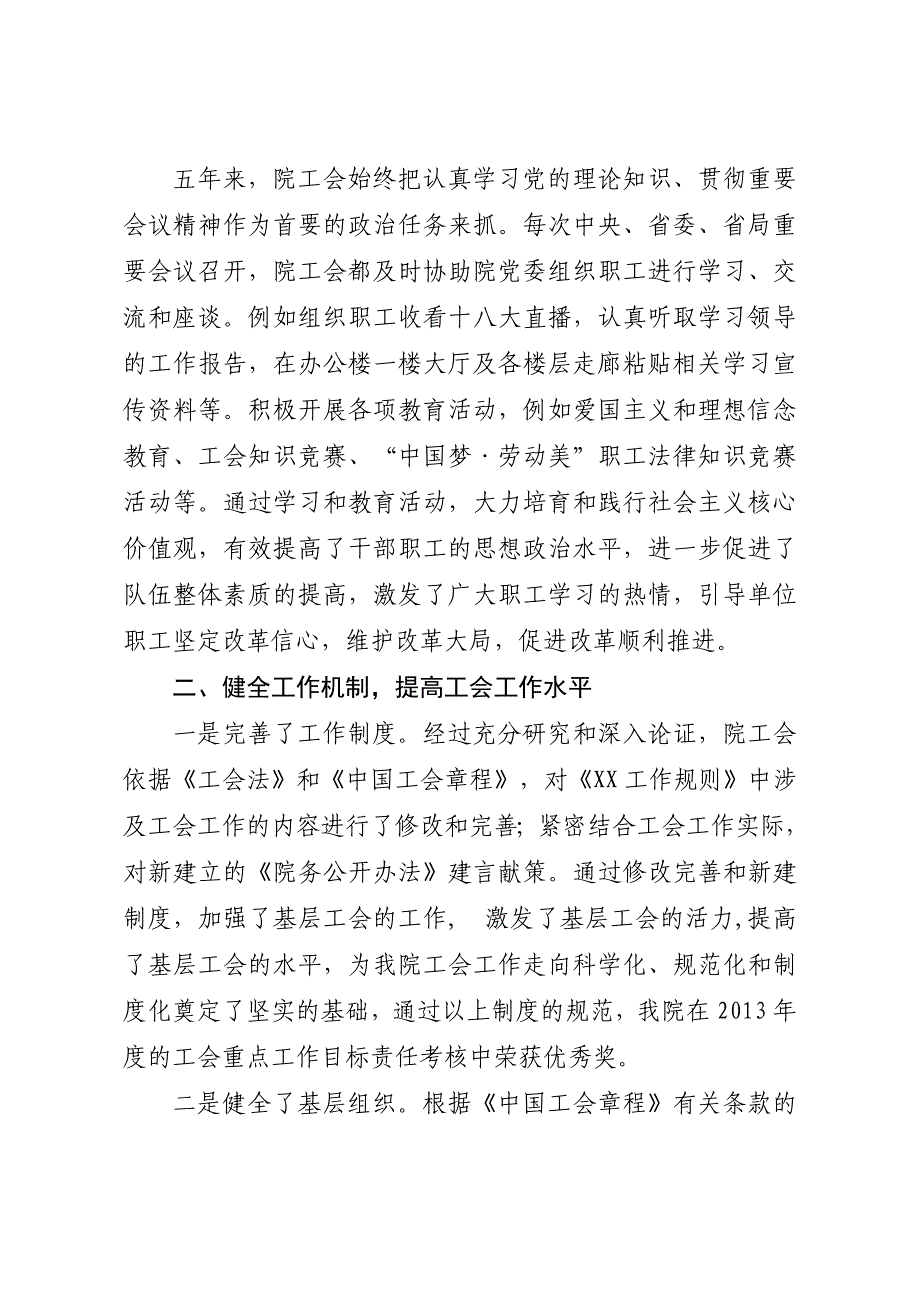 五年来，院工会始终把认真学习党的理论知识、贯彻重要
会议精神作为首要的政治任务来抓。每次中央、省委、省局重
要会议召开，院工会都及时协助院党委组织职工进行学习、交
流和座谈。例如组织职工收看十八大直播，认真听取学习领导
的工作报告，在办公楼一楼大厅及各楼层走廊粘贴相关学习宣
传资料等。积极开展各项教育活动，例如爱国主义和理想信念
教育、工会知识竞赛、“中国梦·劳动美”职工法律知识竞赛
活动等。通过学习和教育活动，大力培育和践行社会主义核心
价值观，有效提高了干部职工的思想政治水平，进一步促进了
队伍整体素质的提高，激发了广大职工学习的热情，引导单位
职工坚定改革信心，维护改革大局，促进改革顺利推进。
二、健全工作机制，提高工会工作水平
一是完善了工作制度。经过充分研究和深入论证，院工会
依据《工会法》和《中国工会章程》，对《XX工作规则》中涉
及工会工作的内容进行了修改和完善；紧密结合工会工作实际，
对新建立的《院务公开办法》建言献策。通过修改完善和新建
制度，加强了基层工会的工作， 激发了基层工会的活力,提高
了基层工会的水平，为我院工会工作走向科学化、规范化和制
度化奠定了坚实的基础，通过以上制度的规范，我院在2013年
度的工会重点工作目标责任考核中荣获优秀奖。
二是健全了基层组织。根据《中国工会章程》有关条款的